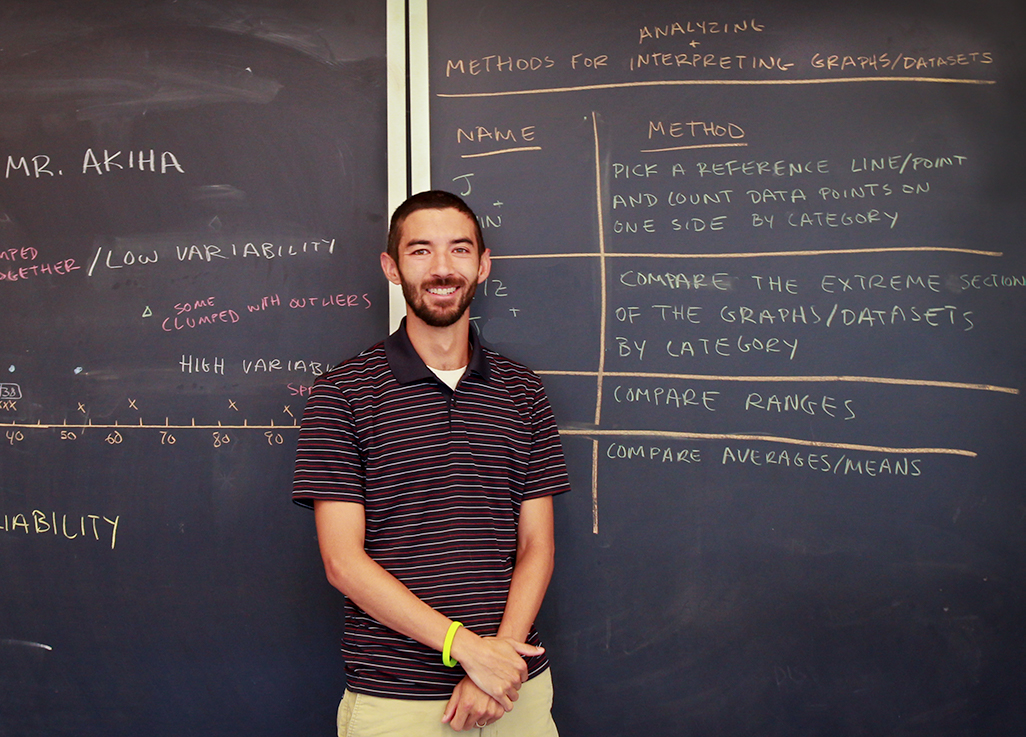 MR. AKIHA
/LOW VARIABILITY
SOME
CLUMPED WITH OUTLIERS
HIGH
38
xxx x x x x
40 50 60 70 80 90
ANALYZING
+
METHODS FOR INTERPRETING GRAPHS/DATASETS
NAME METHOD
J
+
PICK A REFERENCE LINE/POINT
AND COUNT DATA POINTS ON
ONE SIDE BY CATEGORY
+
COMPARE THE EXTREME SECTION
OF THE GRAPHS/DATASETS
BY CATEGORY
COMPARE RANGES
COMPARE AVERAGES/MEANS